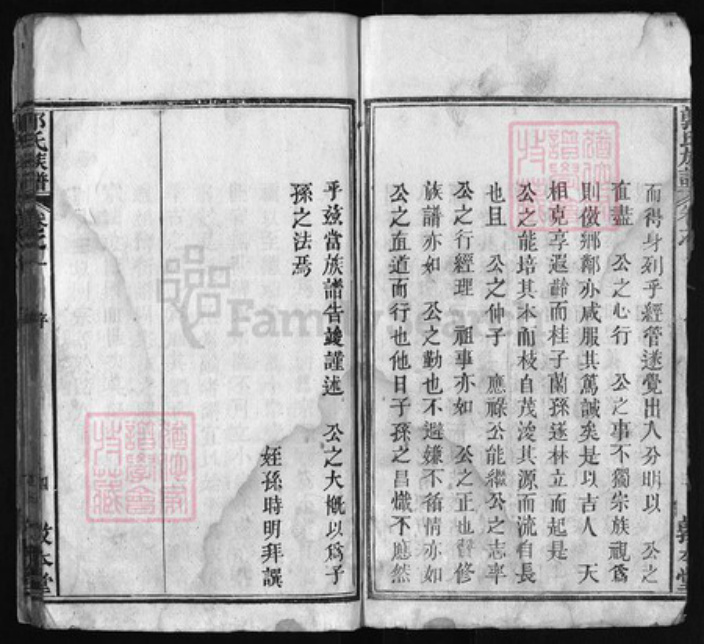 而得身列乎經管遂覺出入分明以　公之
直盡　公之心行　公之事不獨宗族視爲
則傚鄉鄰亦咸服其篤誠矣是以吉人　天
相克享遐齡而桂子蘭孫遂林立而起是
公之能培其本而枝自茂浚其源而流自長
也且　公之仲子　應祿公能繼公之志率
公之行經理　祖事亦如　公之正也督修
族譜亦如　公之勤也不避嫌不循情亦如
公之直道而行也他日子孫之昌熾不應然
乎兹當族譜告竣謹述　公之大慨以爲子
孫之法焉
姪孫時明拜譔
氏族譜
卷之一
序
四
敦本堂
FamilySearch